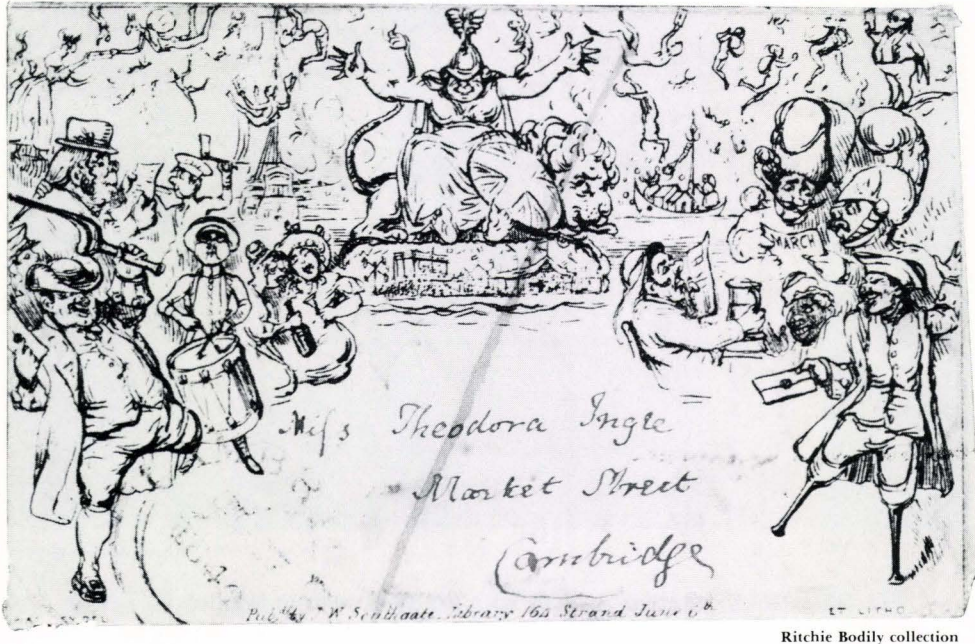 MARCH
Miſs Theodora Ingle
Market Street
Cambridge
Pubd. by W Southgate. Library 164 Strand June 6th
LITHO
Ritchie Bodily collection